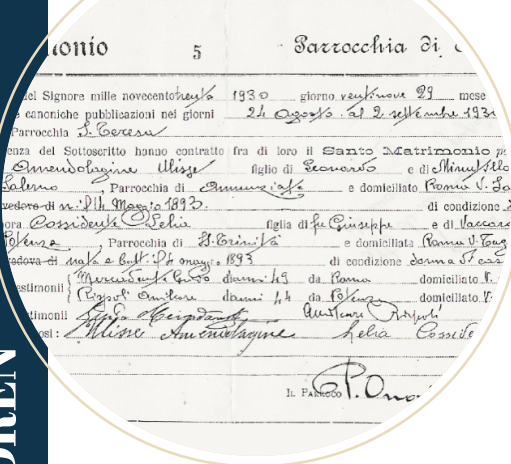 onio 5 Parrocchia di
del Signore mille novecentotrenta 1930 giorno ventinove 29 mese
e canoniche pubblicazioni nei giorni 24 Agosto al 2 settembre 193
Parrocchia S. Teresa
enza del Sottoscritto hanno contratto fra di loro il Santo Matrimonio
Amendolagine Ulisse figlio di Leonardo e di
Salerno, Parrocchia di Annunziata e domiciliato Roma V.
vedovo di n. il 14 Maggio 1893. di condizione
ora Cossidente Lelia figlia di fu Giuseppe e di Vaccaro
Potenza, Parrocchia di S. Trinità e domiciliata Roma V.
vedova di nata e batt. 14 maggio 1893 di condizione donna di casa
estimonii Guido d'anni 49 da Roma domiciliato V.
Rispoli d'anni 44 da Potenza domiciliato V.
timonii Guido Rispoli
osi: Ulisse Amendolagine Lelia
IL PARROCO P.
OREN